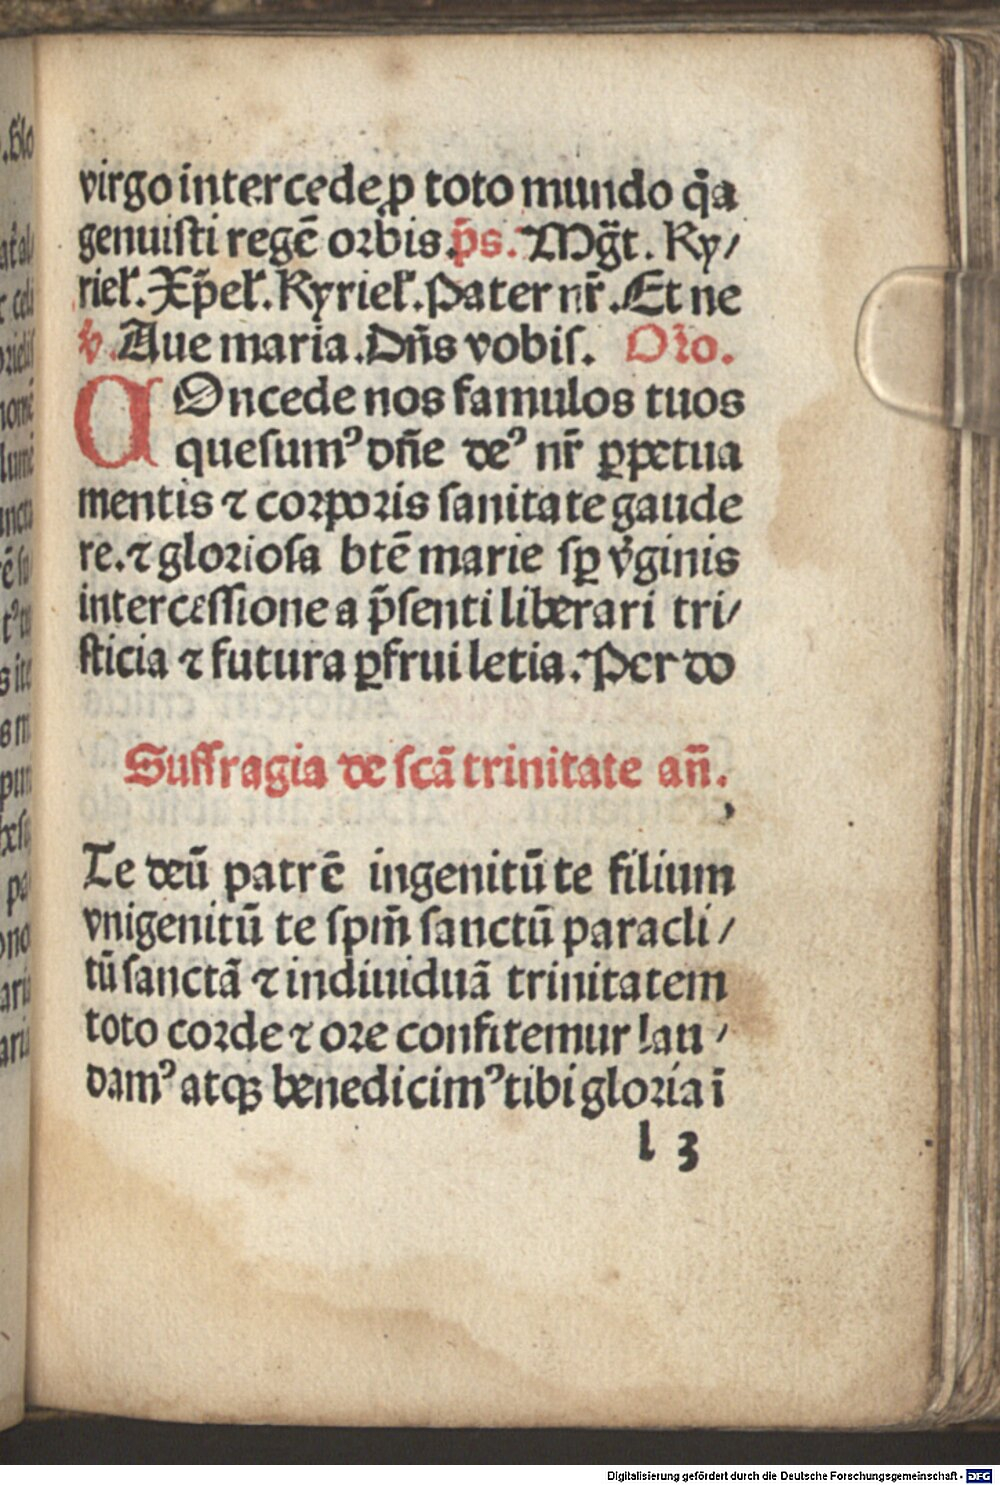 virgo intercede ꝓ toto mundo q̄a
genuisti regē orbis. p̄s. Mḡt. Ky/
riel̄. Xp̄el̄. Kyriel̄. Pater nr̄. Et ne
v̄. Aue maria. Dn̄s vobiſ. Oro.
COncede nos famulos tuos
queſumꝰ dn̄e deꝰ nr̄ ꝑpetua
mentis ⁊ corporis ſanitate gaude
re. ⁊ glorioſa btē marie ſꝑ v̄ginis
interceſſione a p̄ſenti liberari tri/
ſticia ⁊ futura ꝑfrui letia. Per do
Suffragia de ſcā trinitate an̄.
Te deū patrē ingenitū te filium
vnigenitū te ſpm̄ ſanctū paracli/
tū ſanctā ⁊ indiuiduā trinitatem
toto corde ⁊ ore confitemur lau/
damꝰ atqꝫ benedicimꝰ tibi gloria ī
l 3
Digitalisierung gefördert durch die Deutsche Forschungsgemeinschaft - DFG